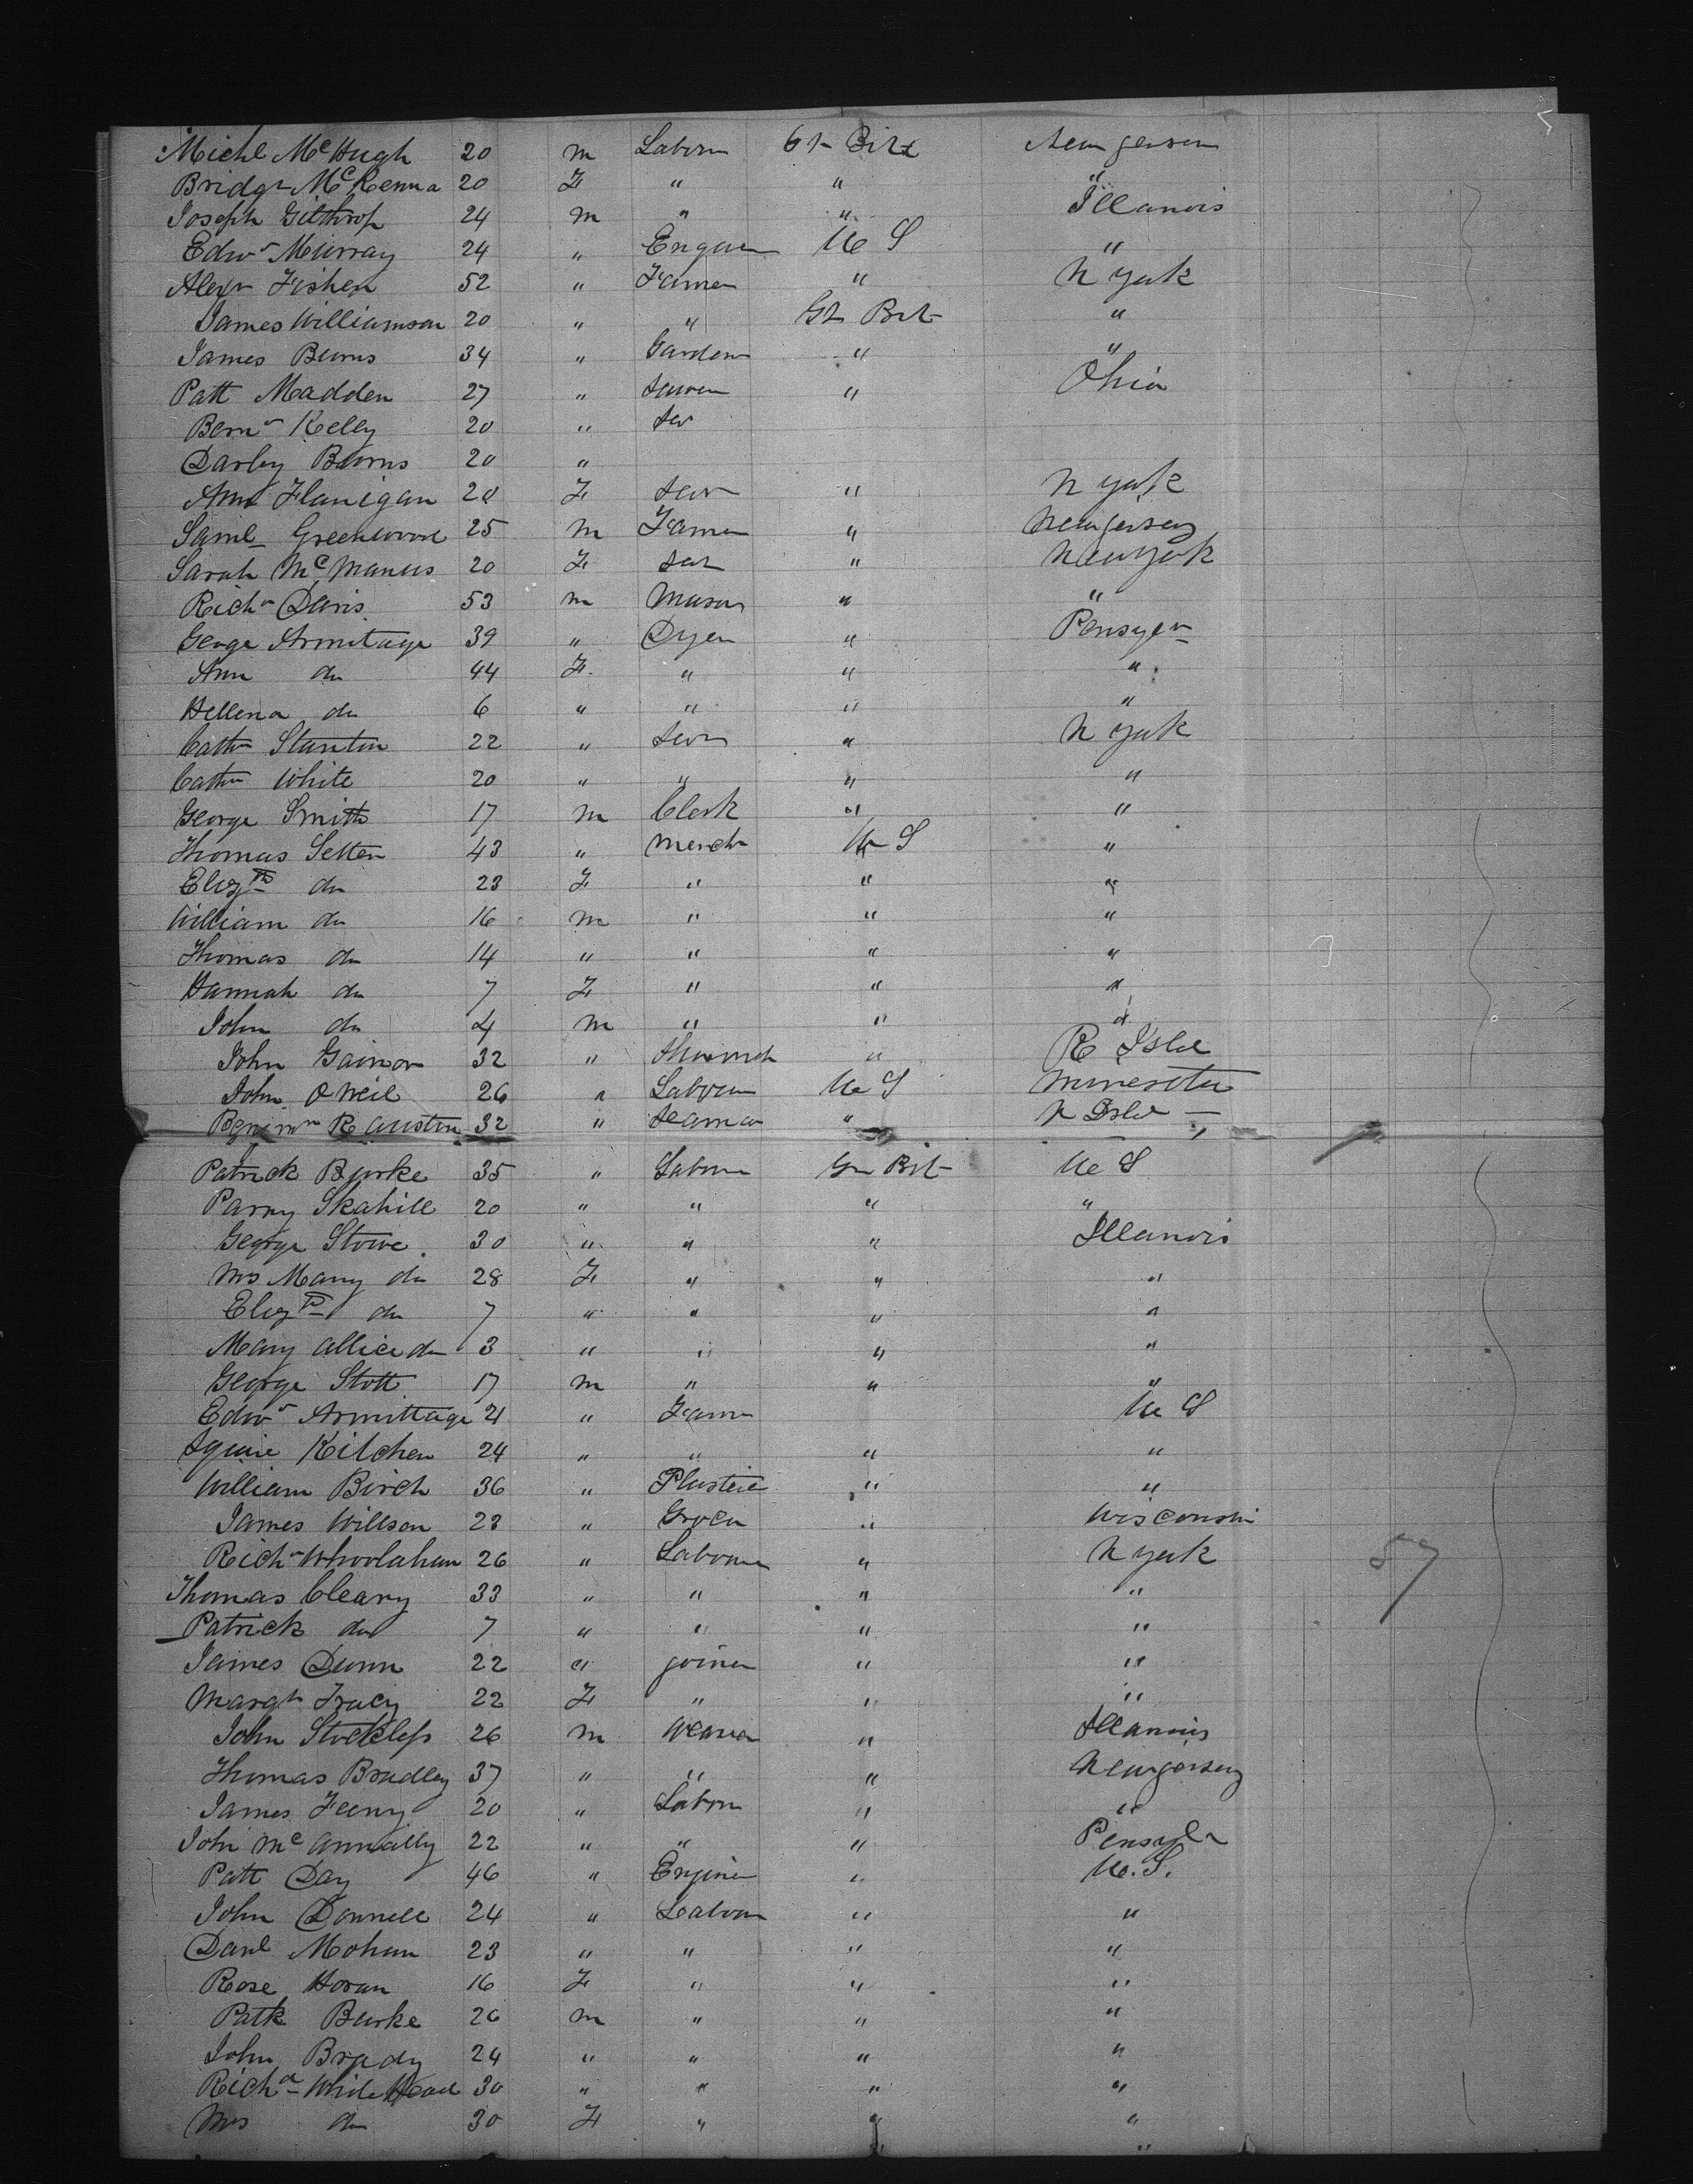 Michl McHugh 20 m Laborn Gt Brit New jersen
Bridgt McKenna 20 F " " "
Joseph Gilthrop 24 m " " Illanois
Edwd Murray 24 " Engine U S "
Alexr Fisher 52 " Farmer " N York
James Williamson 20 " " Gt Brit "
James Burns 34 " Garden " "
Patt Madden 27 " " Ohio
Bernd Kelly 20 " Ser
Darley Burns 20 "
Ann Flanigan 20 F Ser " N York
Saml Greenwood 25 m Farmer " New jersey
Sarah McManus 20 F Ser " New York
Richd Davis 53 m Mason " "
George Armitage 39 " Dyer " Pensylv
Ann do 44 F " " "
Hellena do 6 " " " "
Cathn Stanton 22 " Ser " N York
Cathn White 20 " " " "
George Smith 17 m Clerk " "
Thomas Setter 43 " Merch U S "
Elizth do 23 F " " "
William do 16 m " " "
Thomas do 14 " " " "
Hannah do 7 F " " "
John do 4 m " " "
John Gainor 32 " " R Isld
John O Neil 26 " Laborn U S Minesota
Benjmn R Austin 32 " Seaman " R Isld
Patrick Burke 35 " Laborn Gr Brit U S
Parny Skahill 20 " " " "
George Stowe 30 " " " Illanois
Mrs Mary do 28 F " " "
Elizth do 7 " " " "
Mary Allice do 3 " " " "
George Stott 17 m " " "
Edwd Armittage 21 " Farm U S
Squire Kitchen 24 " " " "
William Birch 36 " Plasteie " "
James Willson 23 " Grocer " Wisconsin
Richd Whoolahan 26 " Laborn " N York
Thomas Cleary 33 " " " "
Patrick do 7 " " " "
James Dunn 22 " joiner " "
Margt Tracy 22 F " " "
John Stockless 26 m Weaver " Illanois
Thomas Bradley 37 " " " New jersey
James Feeny 20 " Laborn " "
John McAnnally 22 " " " Pensyl
Patt Day 46 " Engine " U.S.
John Donnell 24 " Laborn " "
Danl Mohan 23 " " " "
Rose Horan 16 F " " "
Patk Burke 26 m " " "
John Brady 24 " " " "
Richd White Head 30 " " " "
Mrs do 30 F " " "
"
57